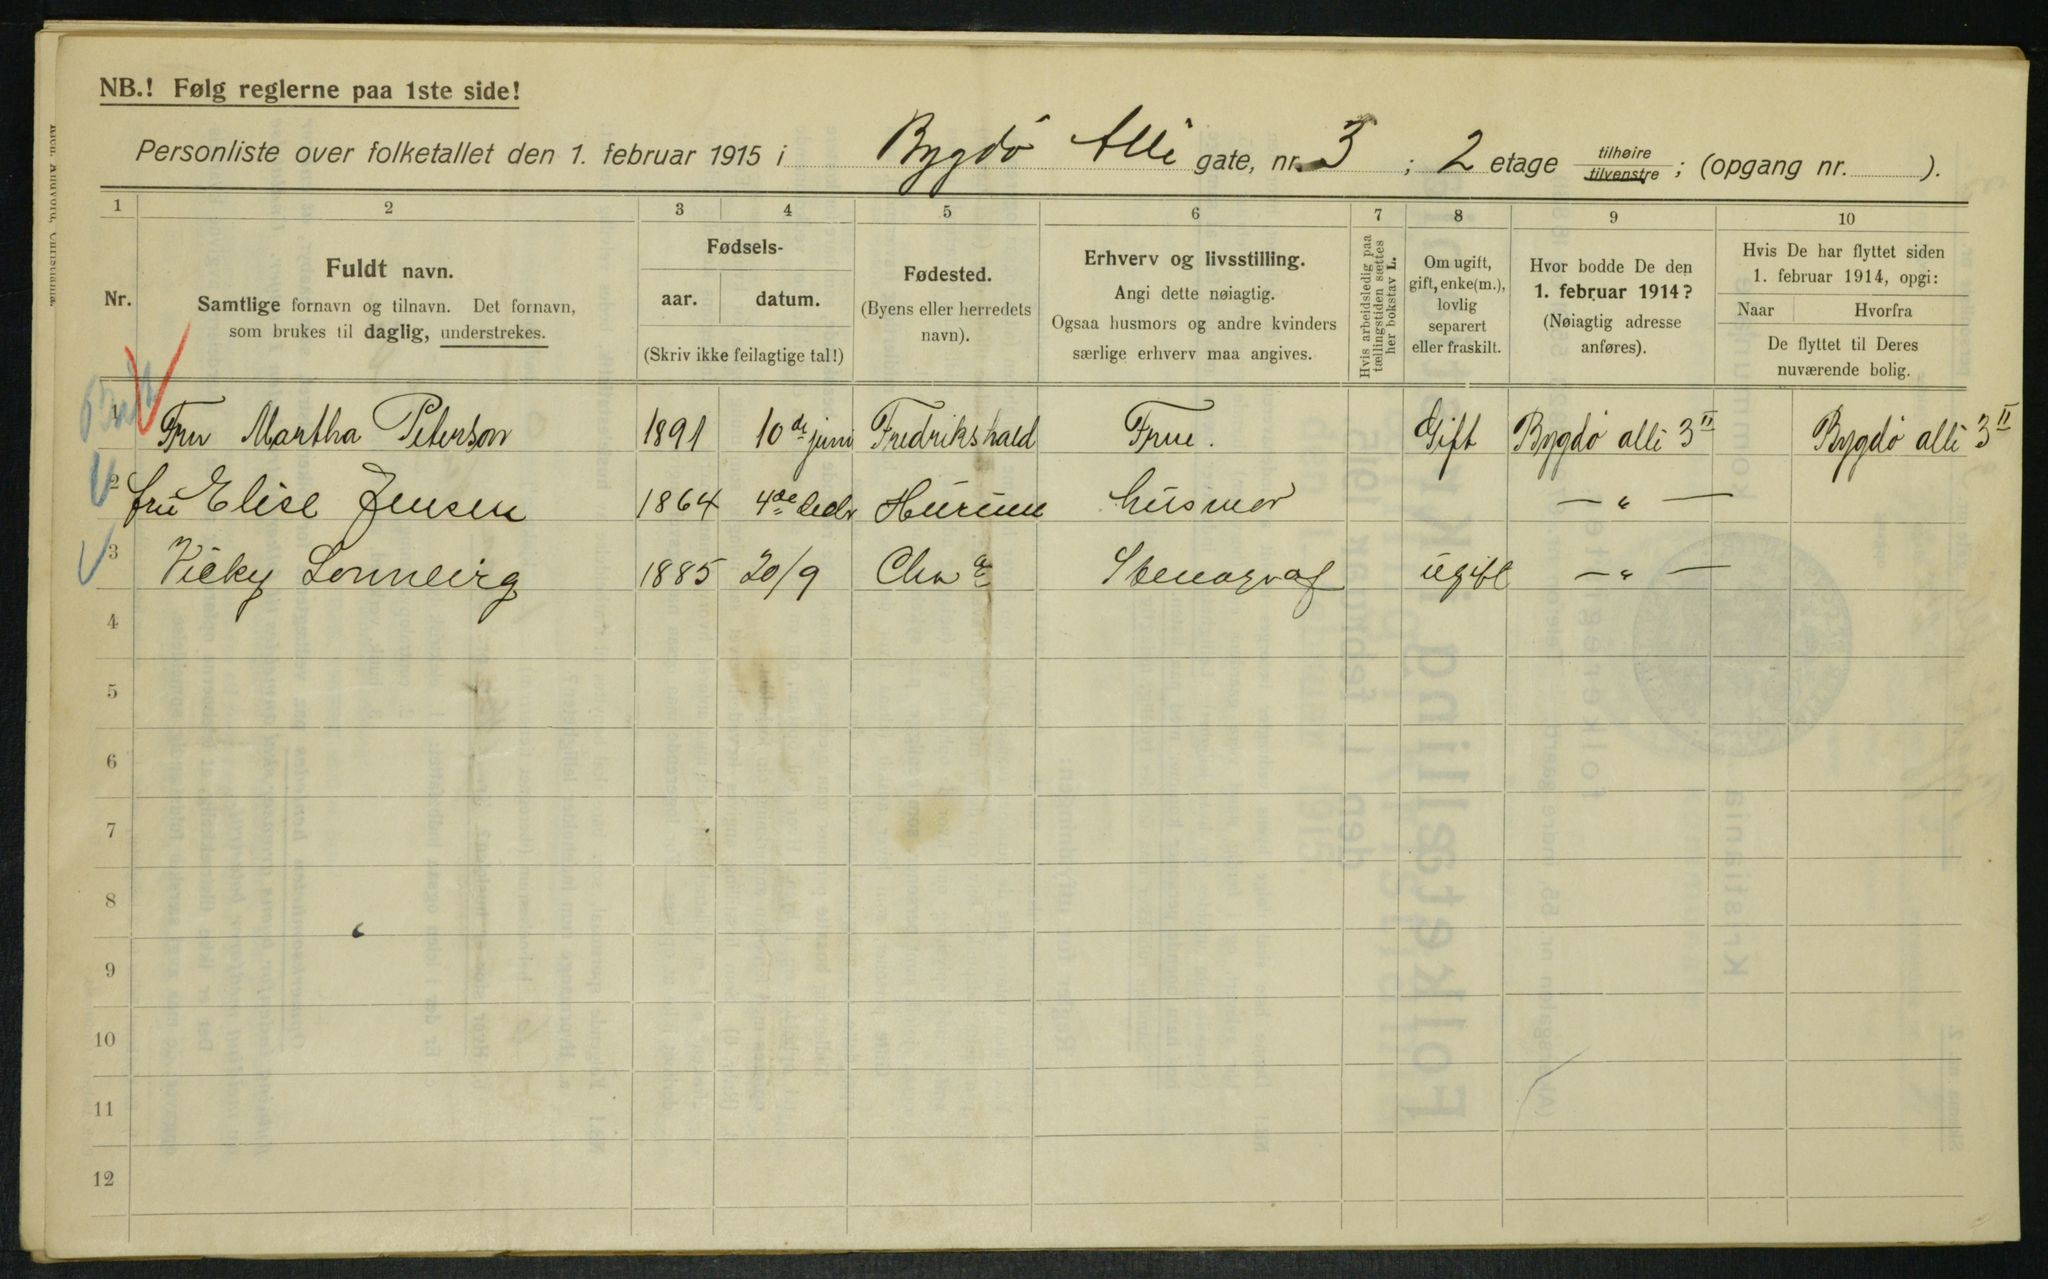 NB.! Følg reglerne paa 1ste side!
Personliste over folketallet den 1. februar 1915 i Bygdö Alle gate, nr. 3 ; 2 etage tilhøire tilvenstre ; (opgang nr. ).
1 2 3 4 5 6 7 8 9 10
Nr.
Fuldt navn.
Samtlige fornavn og tilnavn. Det fornavn,
som brukes til daglig, understrekes.
Fødsels-
aar. datum.
(Skriv ikke feilagtige tal!)
Fødested.
(Byens eller herredets
navn).
Erhverv og livsstilling.
Angi dette nøiagtig.
Ogsaa husmors og andre kvinders
særlige erhverv maa angives.
Hvis arbeidsledig paa
tællingstiden sættes
her bokstav L.
Om ugift,
gift, enke(m.),
lovlig
separert
eller fraskilt.
Hvor bodde De den
1. februar 1914?
(Nøiagtig adresse
anføres).
Hvis De har flyttet siden
1. februar 1914, opgi:
Naar Hvorfra
De flyttet til Deres
nuværende bolig.
1 Fru Martha Peterson 1891 10de juni Fredrikshald Frue. Gift Bygdö alle 3 II Bygdö alle 3 II
2 fru Elise Jensen 1864 4de Hurum husmor — " —
3 Vicky 1885 20/9 Chr a Stenograf ugift — " —
4
5
6
7
8
9
10
11
12